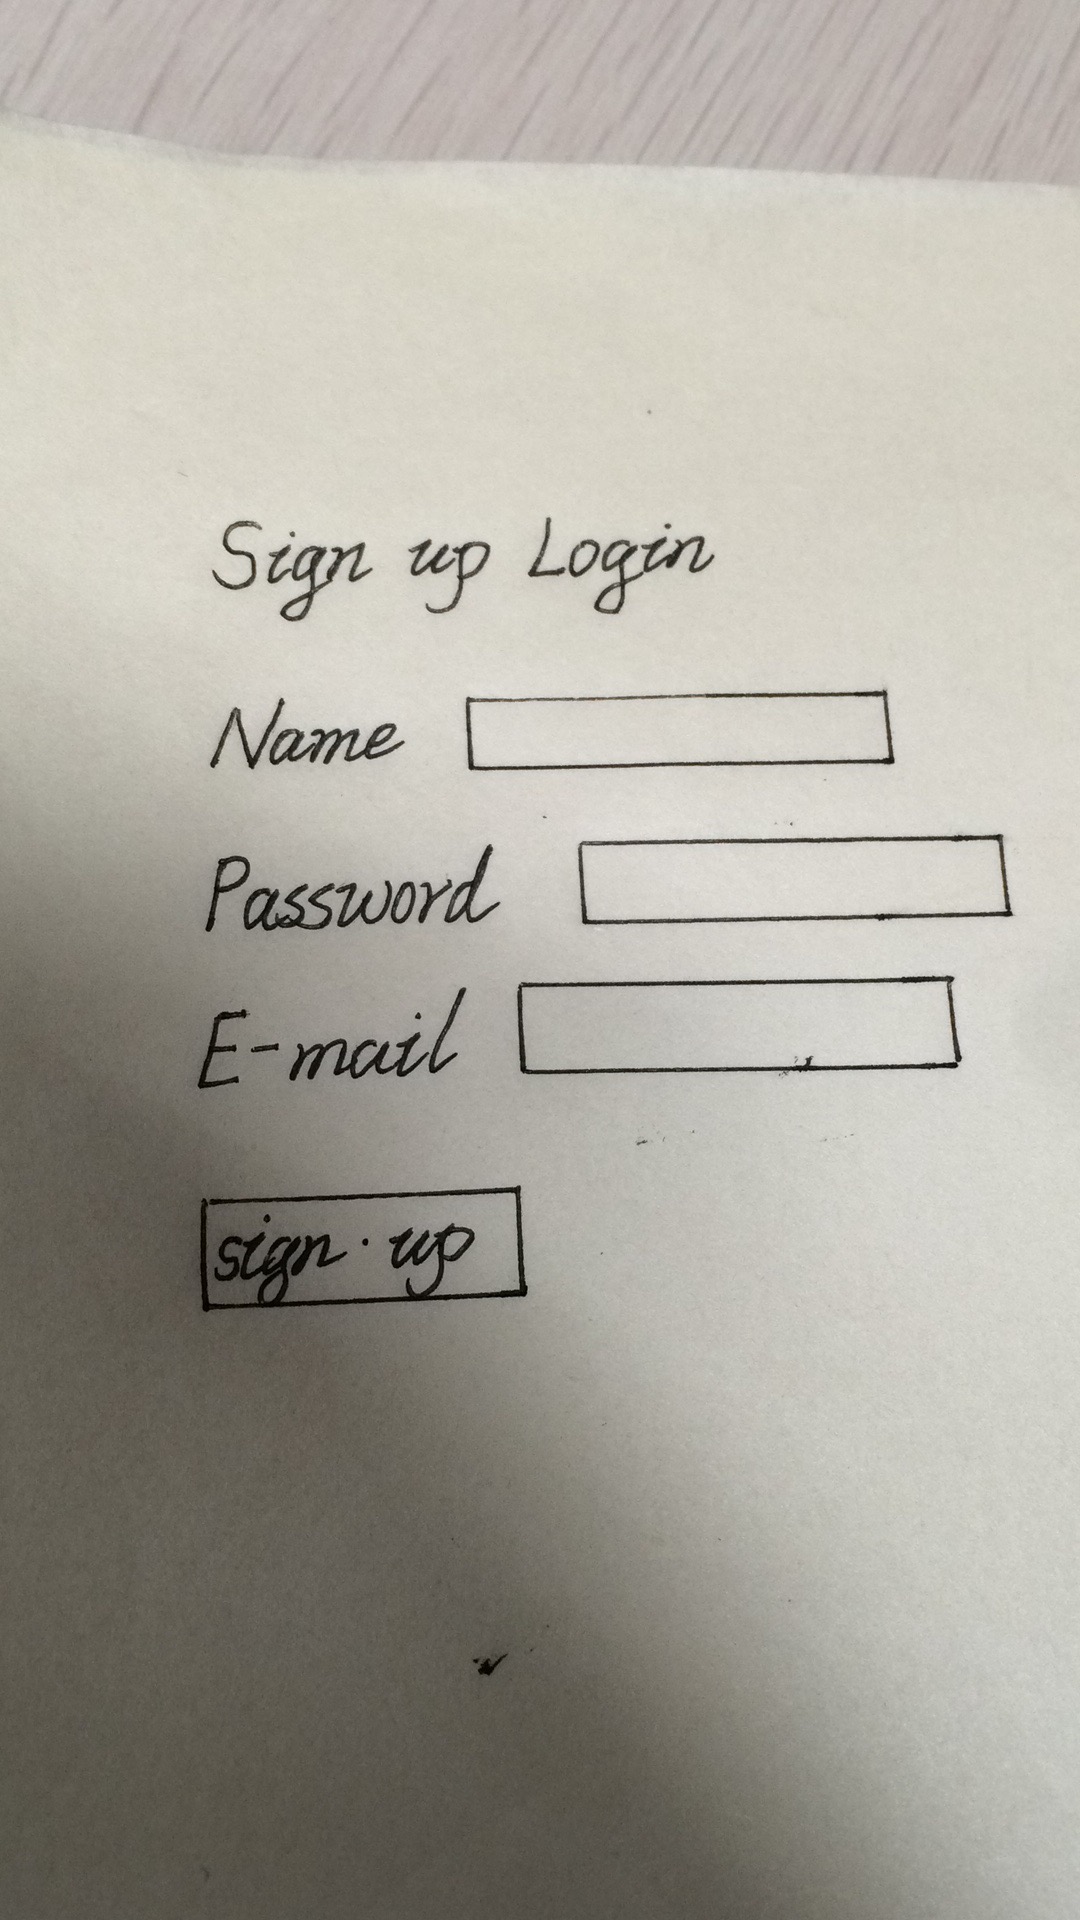 Sign up Login
Name
Password
E-mail
sign·up